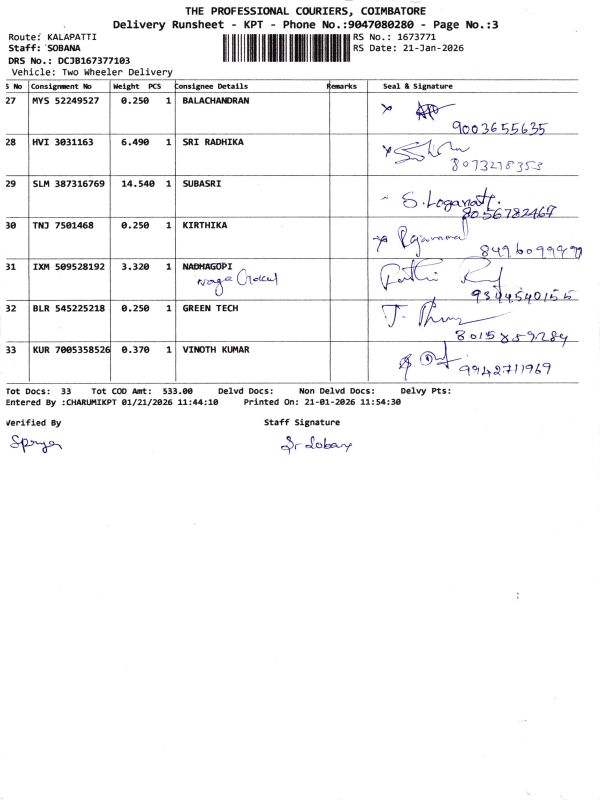 THE PROFESSIONAL COURIERS, COIMBATORE
Delivery Runsheet - KPT - Phone No.:9047080280 - Page No.:3
Route: KALAPATTI RS No.: 1673771
Staff: SOBANA RS Date: 21-Jan-2026
DRS No.: DCJB167377103
Vehicle: Two Wheeler Delivery
S No Consignment No Weight PCS Consignee Details Remarks Seal & Signature
27 MYS 52249527 0.250 1 BALACHANDRAN
9003655635
28 HVI 3031163 6.490 1 SRI RADHIKA
8073278353
29 SLM 387316769 14.540 1 SUBASRI
S. Loganath
8056782467
30 TNJ 7501468 0.250 1 KIRTHIKA
Rajammal
31 IXM 509528192 3.320 1 NADHAGOPI
32 BLR 545225218 0.250 1 GREEN TECH
33 KUR 7005358526 0.370 1 VINOTH KUMAR
9942711969
Tot Docs: 33 Tot COD Amt: 533.00 Delvd Docs: Non Delvd Docs: Delvy Pts:
Entered By :CHARUMIKPT 01/21/2026 11:44:10 Printed On: 21-01-2026 11:54:30
Verified By Staff Signature